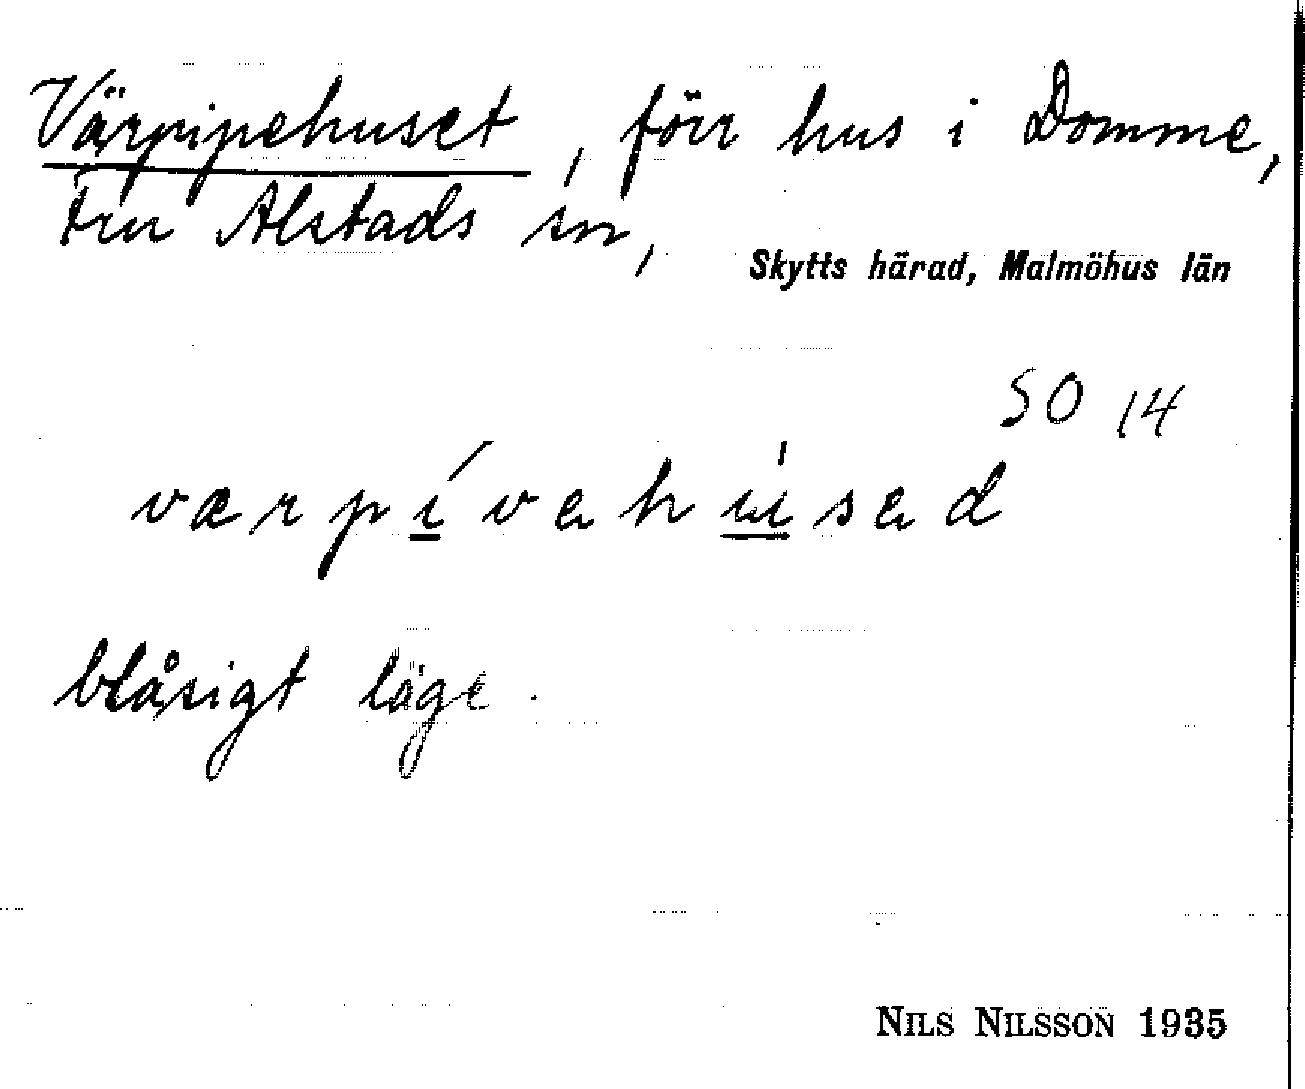 Värpipehuset, förr hus i Domme,
Fru Alstads sn,
Skytts härad, Malmöhus län
SO 14
værpívehúised
blåsigt läge.
NILS NILSSON 1935